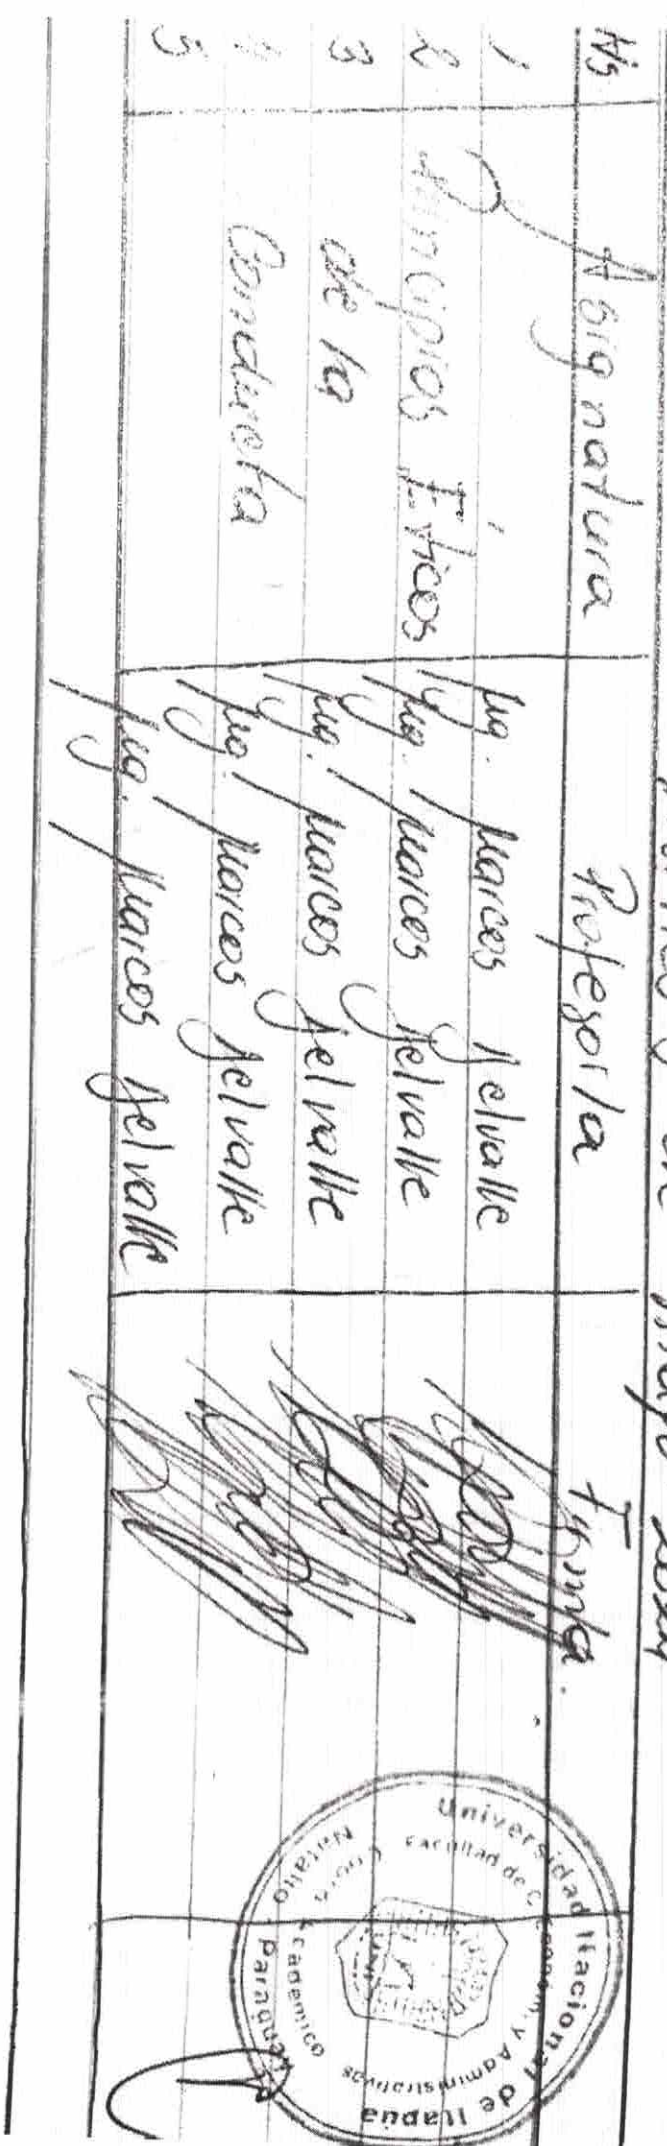 Hs Asignatura Profesor/a Firma.
1 Mg. Marcos Delvalle
2 Principios Éticos Mg. Marcos Delvalle
3 de la Mg. Marcos Delvalle
4 Conducta Mg. Marcos Delvalle
5 Mg. Marcos Delvalle
Universidad Nacional de Itapúa
Facultad de C. Económ. y Administrativas
Académico
Natalio - Paraguay